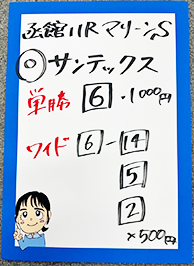 函館11R マリーンS
◎サンテックス
単勝 6・1000円
ワイド 6-14
5
2
×500円